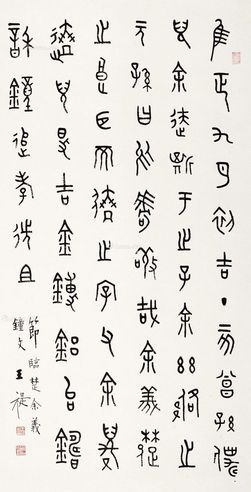 隹正九月初吉丁亥曾孫僕
兒余迭斯于之子余茲佫之
元孫曰於嘑敬哉余義楚
之良臣而逨之字父余贎
逨兒得吉金鎛鋁台鑄
訴鐘追孝先且
節臨楚余義
鐘文 王禔